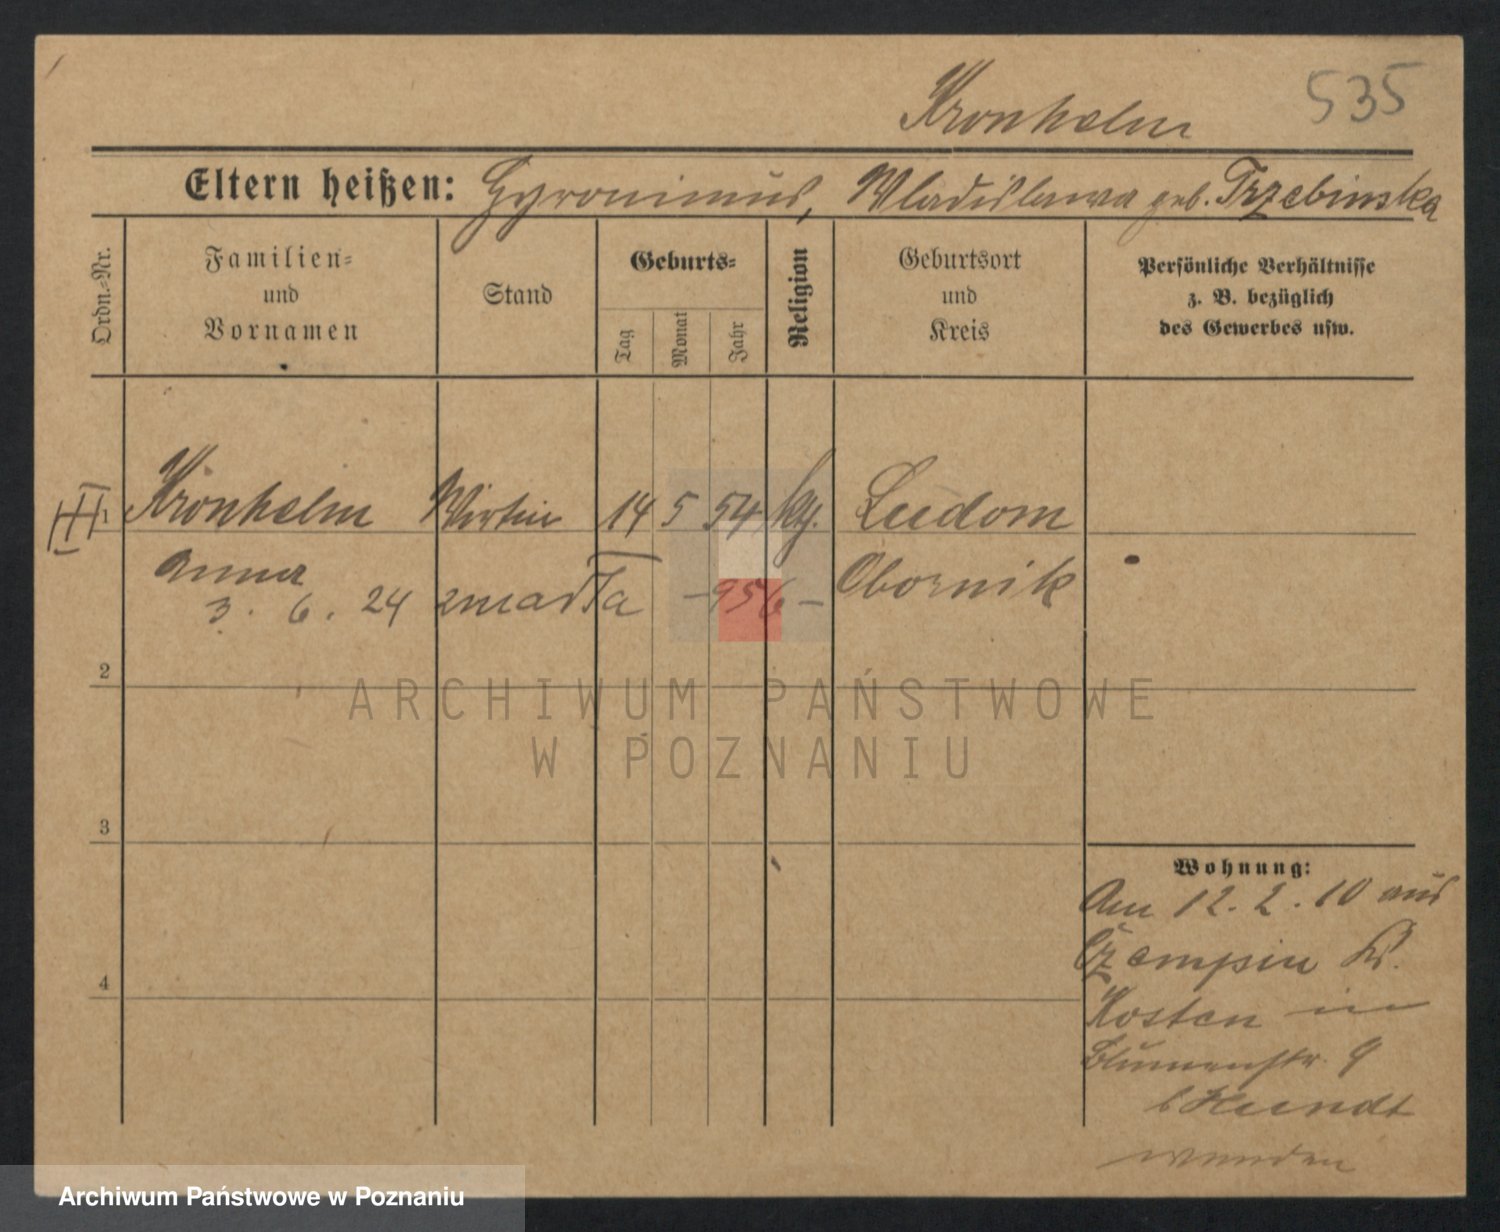 535
Kronhelm
Eltern heißen: Hyronimus, Wladislawa geb. Trzebinska
Ordn.-Nr.
Familien-
und
Vornamen
Stand
Geburts-
Tag
Monat
Jahr
Religion
Geburtsort
und
Kreis
Persönliche Verhältnisse
z. B. bezüglich
des Gewerbes usw.
1 Kronhelm Wirtin 14 5 54 kg. Ludom
Anna Obornik
3. 6. 24 zmarła -956-
2
3
4
Wohnung:
Am 12. 2. 10 aus
Czempin Kr.
Kosten in
Blumenstr. 9
b Kundt
ARCHIWUM PAŃSTWOWE
W POZNANIU
Archiwum Państwowe w Poznaniu